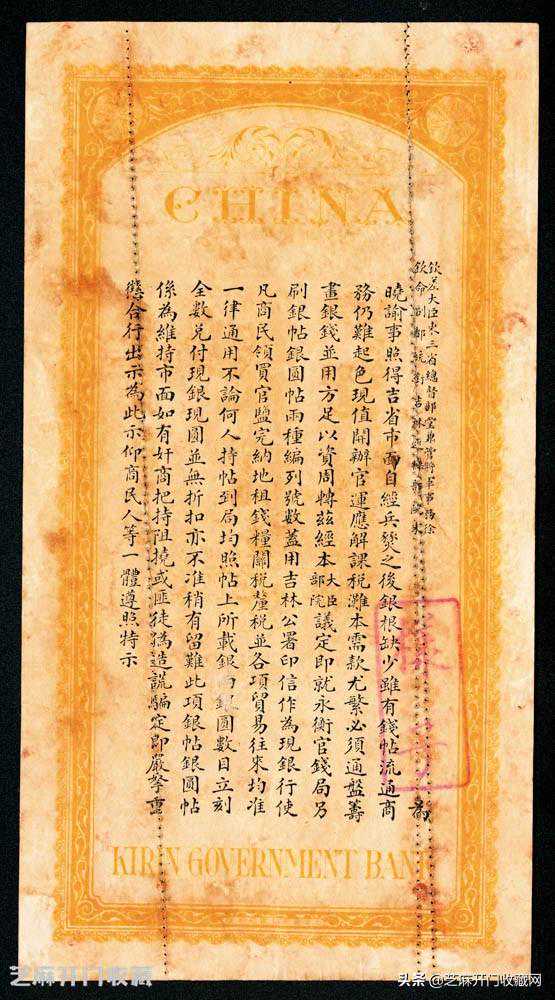 CHINA
欽差大臣東三省總督部堂兼管將軍事務徐
欽命副都統銜吉林 朱 為
曉諭事照得吉省市面自經兵燹之後銀根缺少雖有錢帖流通商
務仍難起色現值開辦官運應解課稅灘本需款尤繁必須通盤籌
畫銀錢並用方足以資周轉茲經本大臣部院議定即就永衡官錢局另
刷銀帖銀圓帖兩種編列號數蓋用吉林公署印信作為現銀行使
凡商民領買官鹽完納地租錢糧關稅釐稅並各項貿易往來均准
一律通用不論何人持帖到局均照帖上所載銀兩銀圓數目立刻
全數兌付現銀現圓並無折扣亦不准稍有留難此項銀帖銀圓帖
係為維持市面如有奸商把持阻撓或匪徒偽造誆騙定即嚴拏重
懲合行出示為此示仰商民人等一體遵照特示
KIRIN GOVERNMENT BANK
芝麻开门收藏
头条 @芝麻开门收藏网